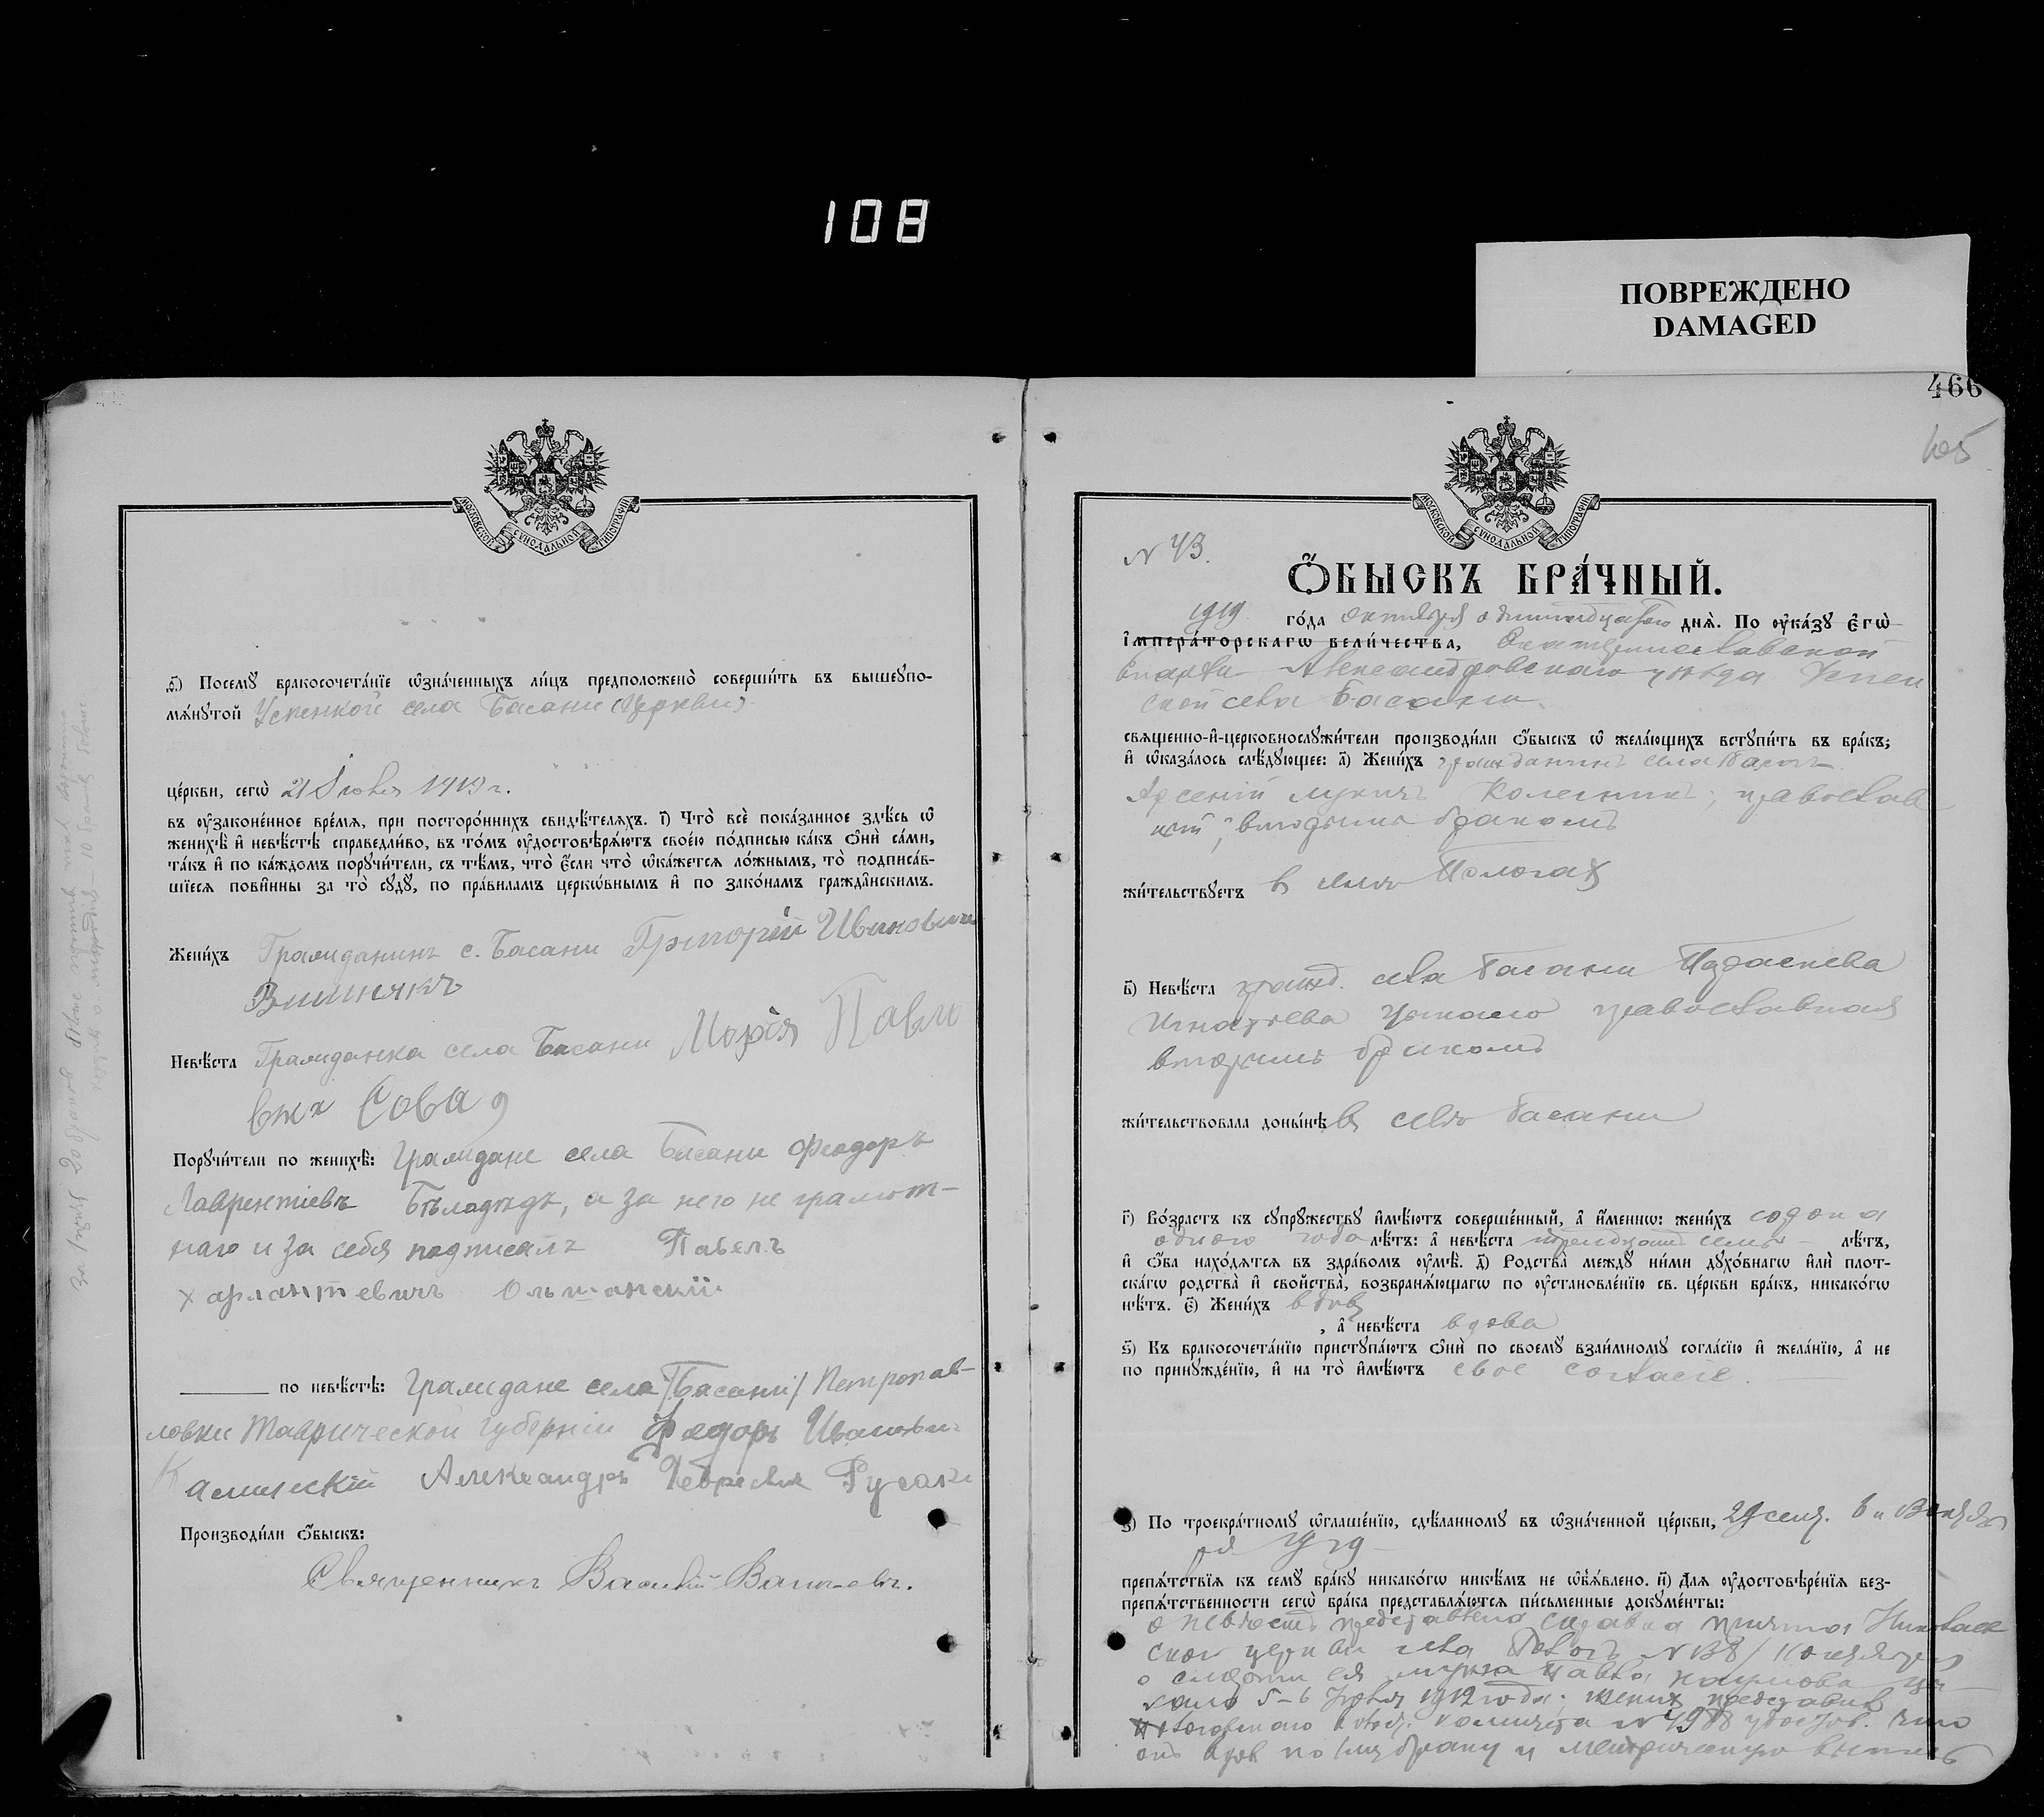 108
ПОВРЕЖДЕНО
DAMAGED
МОСКОВСКОЙ СѴНОДАЛЬНОЙ ТИПОГРАФІИ
з҃) Посемꙋ бракосочетанїе ѡзначенныхъ лицъ предположено совершить въ вышеꙋпо-
мянꙋтой Успенкой села Басани (Церкви)
церкви, сегѡ 21 Іюня 1919 г.
въ ꙋзаконенное время, при постороннихъ свидѣтеляхъ. і҃) Что всѐ показанное здѣсь ѡ
женихѣ и невѣстѣ справедливо, въ томъ ꙋдостовѣряютъ своею подписью какъ ѻни сами,
такъ и по каждомъ порꙋчители, съ тѣмъ, что если что ѡкажется ложнымъ, то подписав-
шїеся повинны за то сꙋдꙋ, по правиламъ церкѡвнымъ и по законамъ гражданскимъ.
Женихъ Гражданинъ с. Басани Григорій Ивановичъ
Вишнякъ
Невѣста Гражданка села Басани Марія Павло
вна Сова
Порꙋчители по женихѣ: Граждане села Басани Феодоръ
Лаврентіевъ Бѣладѣдъ, а за него не грамот-
наго и за себя подписалъ Павелъ
Харлантіевичъ Ольшанскій
по невѣстѣ: Граждане села (Басани) Петропав-
ловки Таврической губерніи Федоръ Иванович
Каминскій Александръ Русаки
Производили ѻбыскъ:
Священникъ Василій
466
МОСКОВСКОЙ СѴНОДАЛЬНОЙ ТИПОГРАФІИ
N 43.
ѺБЫСКЪ БРАЧНЫЙ.
1919 года октября одиннадцатаго дня. По ꙋказꙋ Егѡ
Императорскагѡ величества, Екатеринославской
Епархіи Александровскаго уѣзда Успен
ской села Басани
священно-и-церковнослꙋжители производили ѻбыскъ ѡ желающихъ встꙋпить въ бракъ;
и ѡказалось слѣдꙋющее: а҃) Женихъ гражданинъ села Басань
Арсеній Лукичъ Колесникъ, православ
ный, вторымъ бракомъ
жительствꙋетъ в селѣ Пологах
в҃) Невѣста гражд. села Басани Параскева
Игнатьева православная
вторымъ бракомъ
жительствовала донынѣ в селѣ Басани
г҃) Возрастъ къ сꙋпрꙋжествꙋ имѣютъ совершенный, а именнѡ: женихъ сорока
одного года лѣтъ: а невѣста тридцати семи лѣтъ,
и ѻба находятся въ здравомъ ꙋмѣ. д҃) Родства междꙋ ними дꙋховнагѡ или плот-
скагѡ родства и свойства, возбраняющагѡ по ꙋстановленїю св. церкви бракъ, никакогѡ
нѣтъ. є҃) Женихъ вдовъ
, а невѣста вдова
ѕ҃) Къ бракосочетанїю пристꙋпаютъ ѻни по своемꙋ взаимномꙋ согласїю и желанїю, а не
по принꙋжденїю, и на то имѣютъ свое согласіе.
з҃) По троекратномꙋ ѡглашенїю, сдѣланномꙋ въ ѡзначенной церкви, 29 сент. 6 и 13 октяб
ря 1919
препятствїя къ семꙋ бракꙋ никакогѡ никѣмъ не ѡбъявлено. и҃) Для ꙋдостовѣренїя без-
препятственности сегѡ брака представляются письменные докꙋменты:
о невѣстѣ представлена справка причта Николаев
ской церкви села N 138
о смерти ея мужа Павла Наумова
5-6 1912 года. Жених представил
комитета N 4988 удостов. что
онъ вдов по 1му браку и метрическую выпись